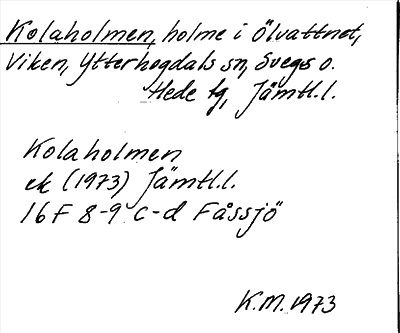 Kolaholmen, holme i Ölvattnet,
Viken, Ytterhogdals sn, Svegs o.
Hede tg, Jämtl.l.
Kolaholmen
ek (1973) Jämtl.l.
16F 8-9 c-d Fåssjö
K.M. 1973